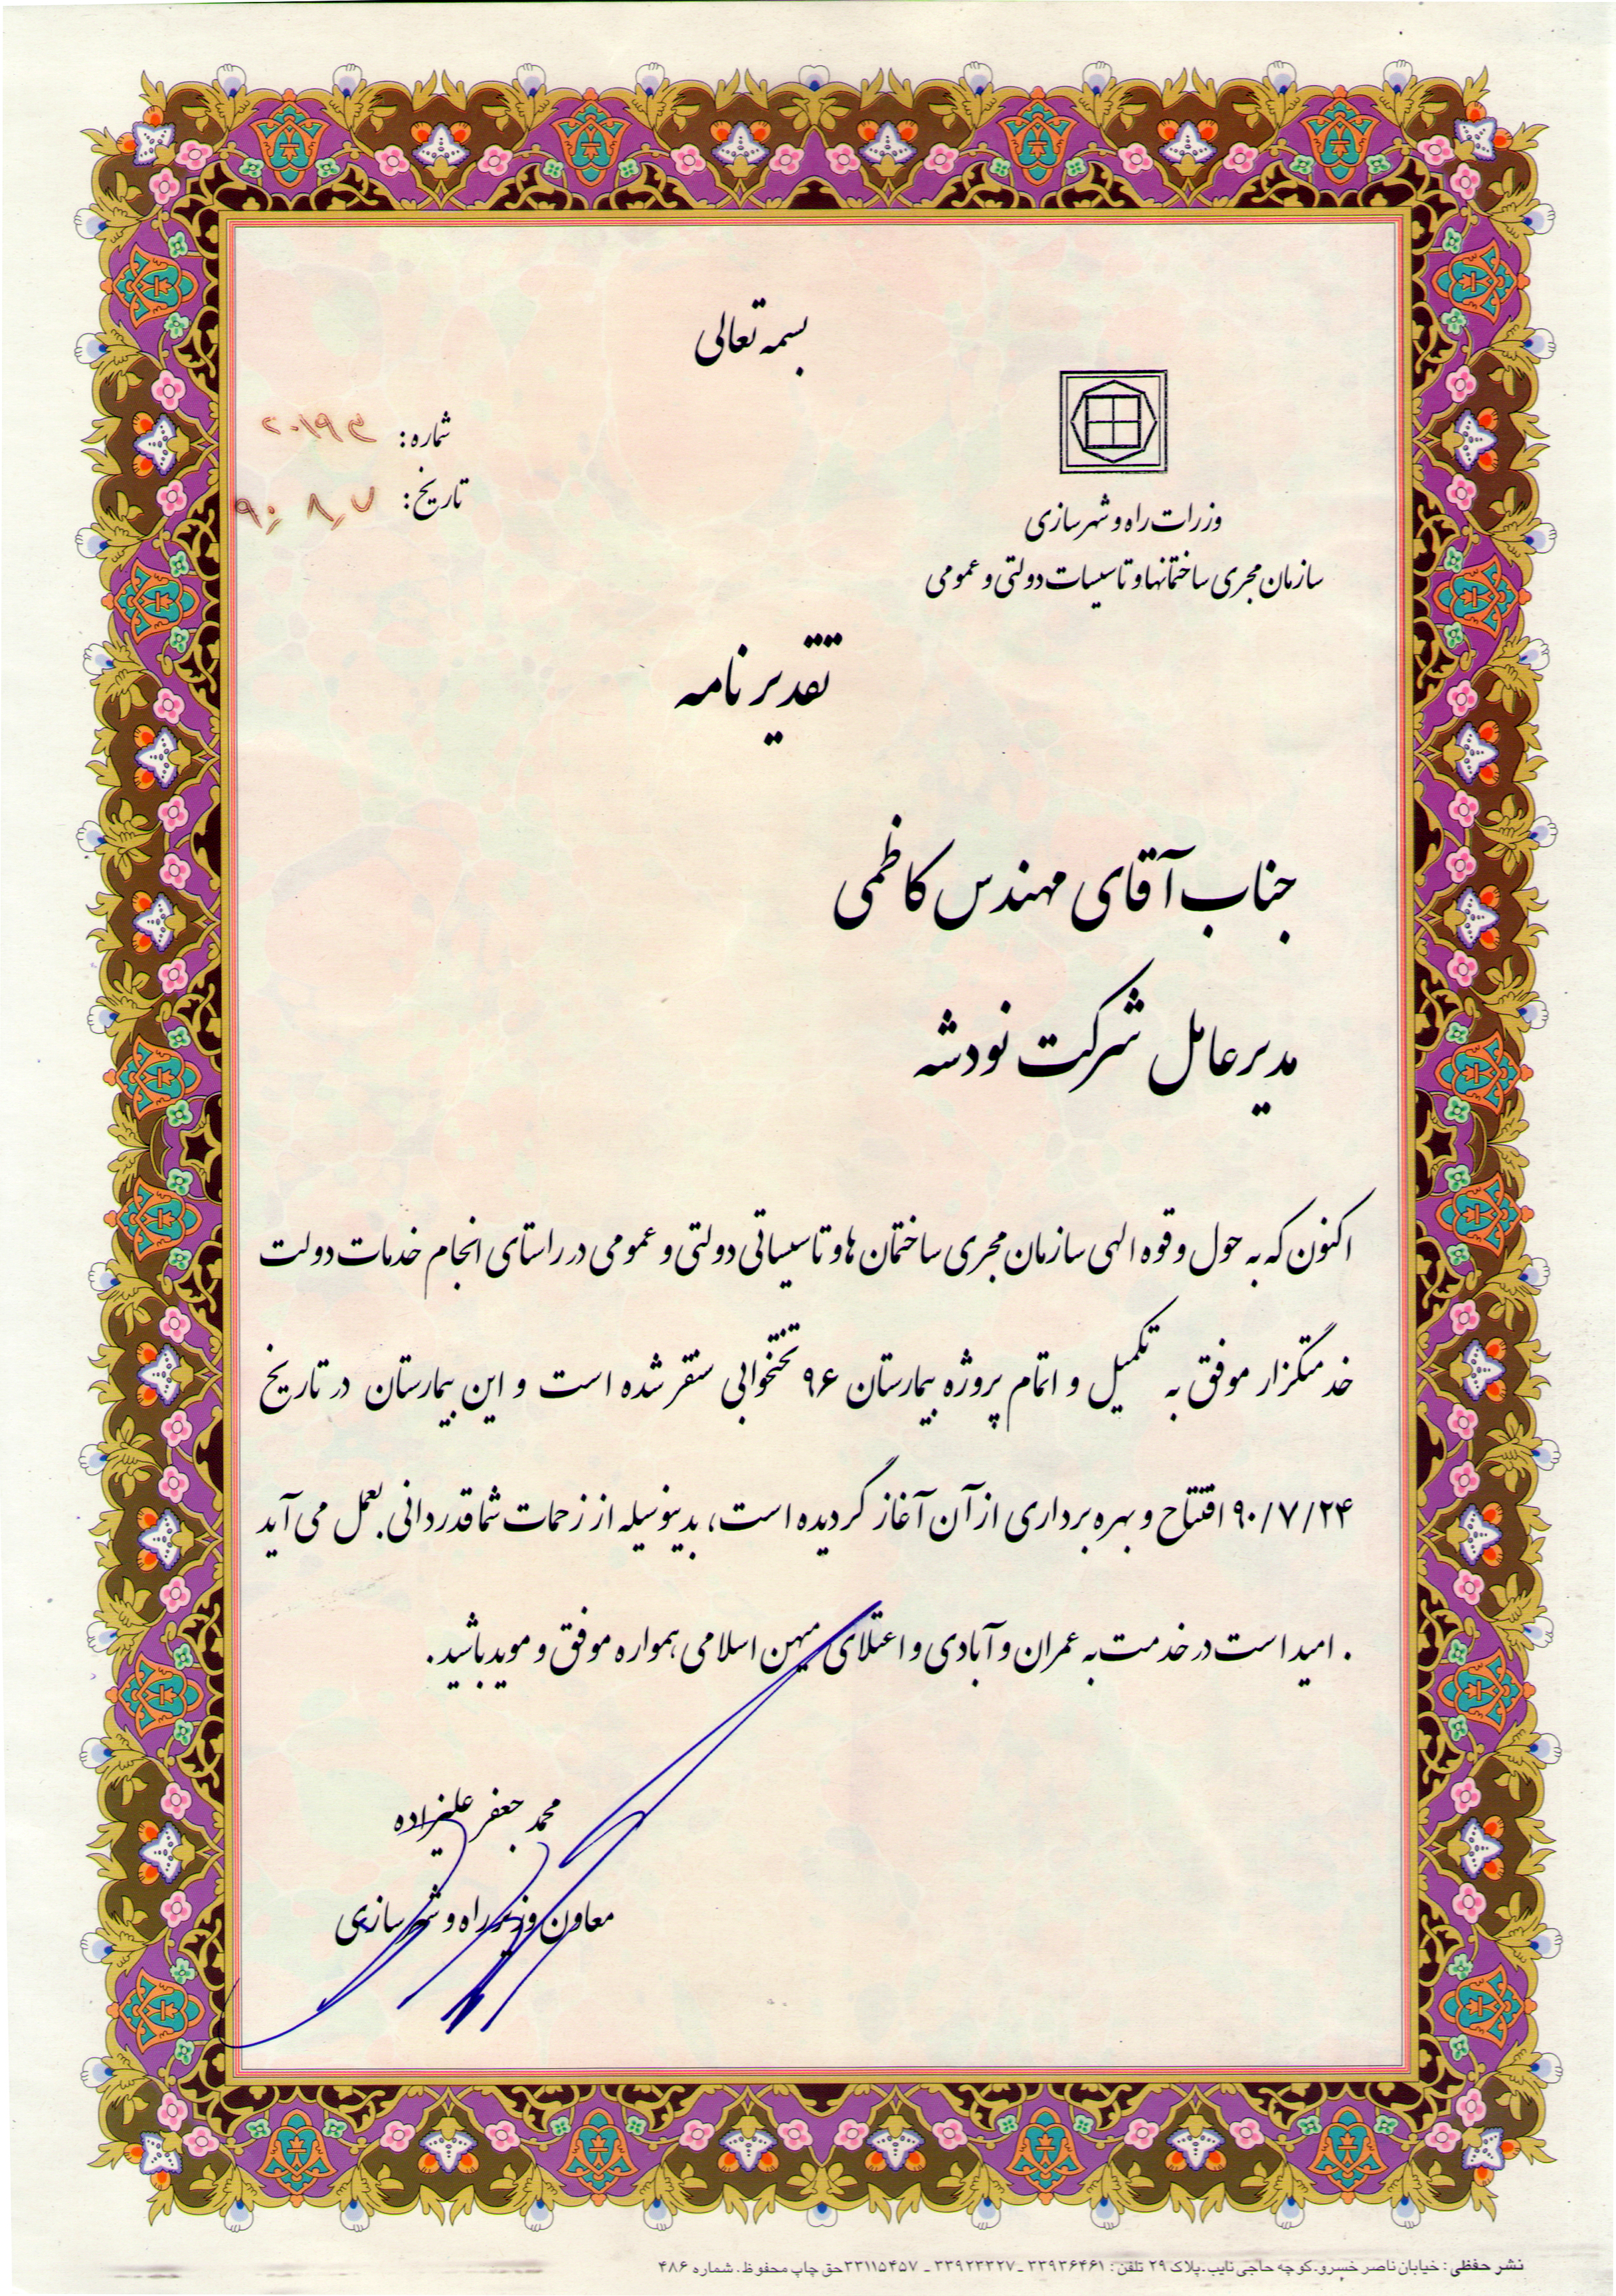 بسمه تعالی
شماره:
تاریخ: ۹۰/۸/۷
وزرات راه و شهرسازی
سازمان مجری ساختمانها و تاسیسات دولتی و عمومی
تقدیر نامه
جناب آقای مهندس کاظمی
مدیرعامل شرکت نودشه
اکنون که به حول و قوه الهی سازمان مجری ساختمان ها و تاسیساتی دولتی و عمومی در راستای انجام خدمات دولت
خدمتگزار موفق به تکمیل و اتمام پروژه بیمارستان ۹۶ تختخوابی سنقر شده است و این بیمارستان در تاریخ
۹۰/۷/۲۴ افتتاح و بهره برداری از آن آغاز گردیده است، بدینوسیله از زحمات شما قدردانی بعمل می آید
. امید است در خدمت به عمران و آبادی و اعتلای میهن اسلامی همواره موفق و موید باشید.
محمد جعفر علیزاده
معاون وزیر راه و شهرسازی
نشر حفظی: خیابان ناصر خسرو.کوچه حاجی نایب.پلاک ۲۹ تلفن: ۳۳۹۳۶۴۶۱ ـ ۳۳۹۲۳۳۲۷ ـ ۳۳۱۱۵۴۵۷ حق چاپ محفوظ. شماره ۴۸۶